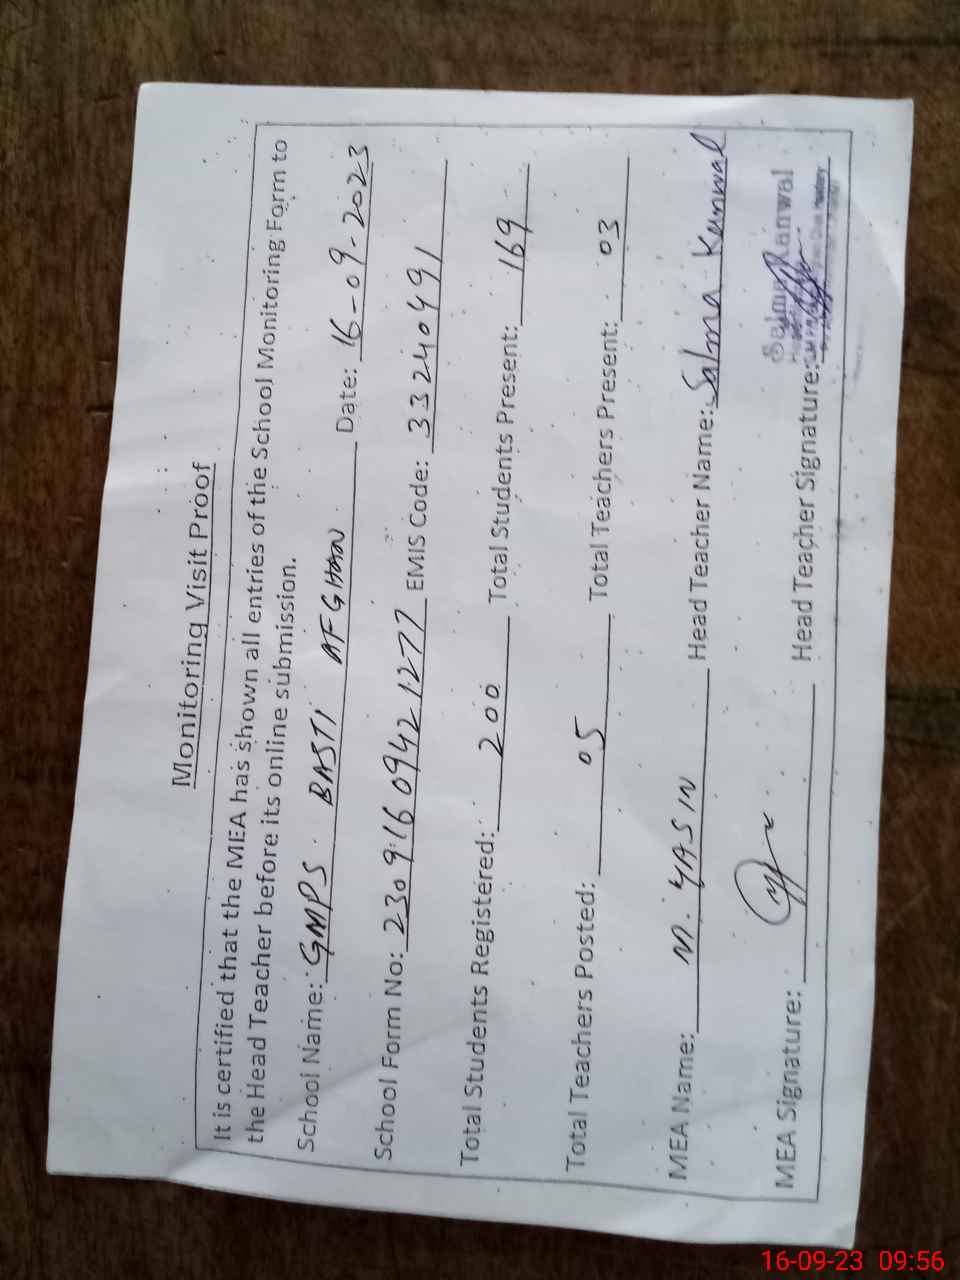 Monitoring Visit Proof
It is certified that the MEA has shown all entries of the School Monitoring Form to
the Head Teacher before its online submission.
School Name: GMPS. BASTI AFGHAN Date: 16-09-2023
School Form No: 23091609421277 EMIS Code: 33240491
Total Students Registered: 200 Total Students Present: 169
Total Teachers Posted: 05 Total Teachers Present: 03
MEA Name: M. YASIN Head Teacher Name: Salma Kanwal
Salma Kanwal
MEA Signature: Head Teacher Signature:
16-09-23 09:56